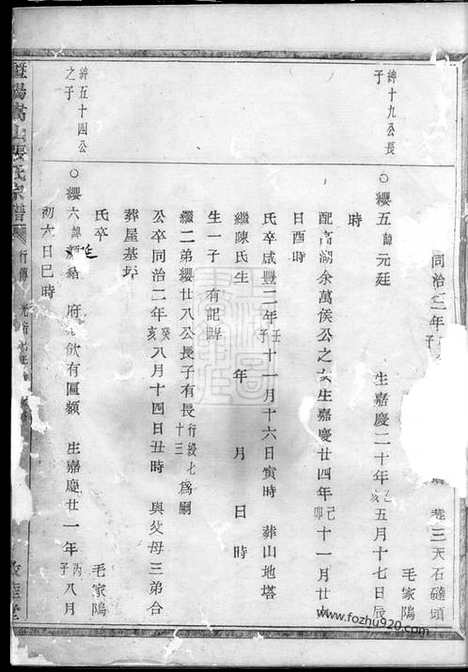 同治三年子
巷三天石磋頭
紳十九公長
子
○纓五諱元廷 生嘉慶二十年乙亥五月十七日辰
毛家陽
時
配高湖余萬侯公之女生嘉慶廿四年己卯十一月廿
日酉時
氏卒咸豐二年壬子十一月十六日寅時 葬山地塔
繼陳氏生 年 月 日時
生一子 有記殤
繼二弟纓廿八公長子有長行綬七十三為嗣
公卒同治二年癸亥八月十四日丑時 與父母三弟合
葬屋基坪
氏卒
紳五十四公
之子
○纓六諱 廷 府 飲有匾額 生嘉慶廿一年丙子八月
毛家陽
初六日巳時
暨陽嵩山 氏宗譜 行傳
www.fozhu920.com